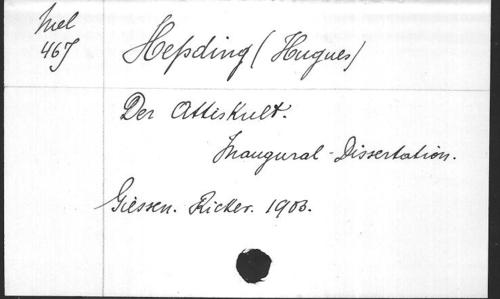 Mel
467
Hepding (Hugues)
Der Attiskult.
Inaugural-Dissertation.
Giessen. Ricker. 1903.